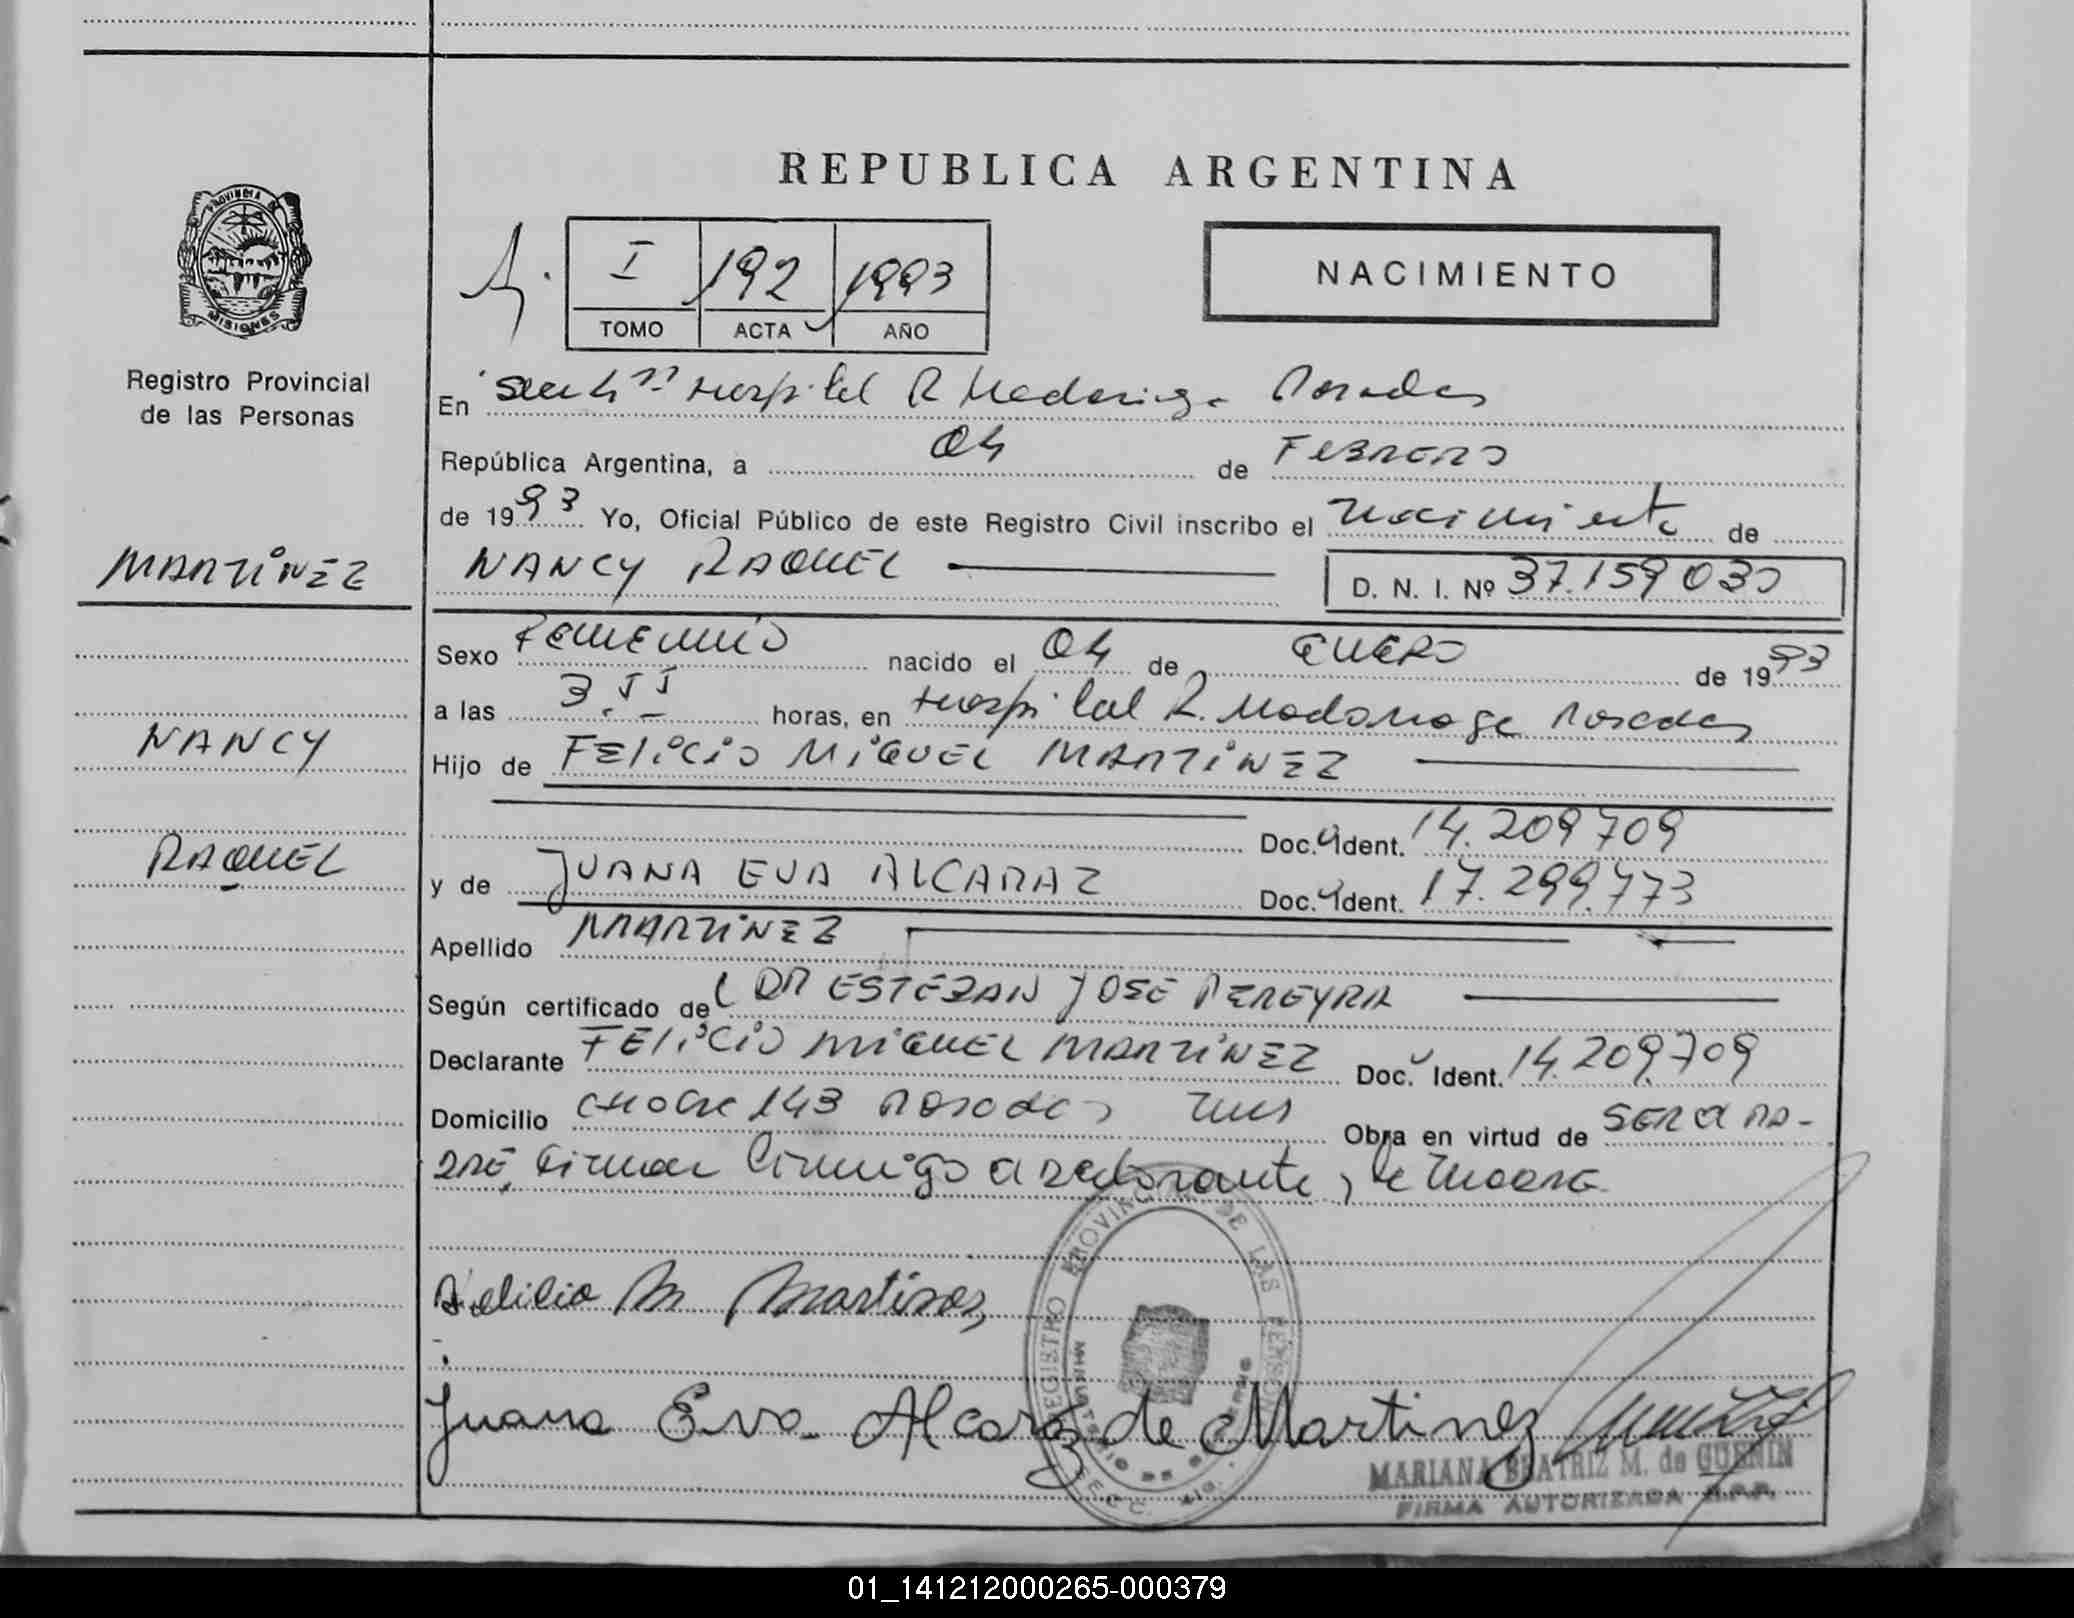 REPUBLICA ARGENTINA
PROVINCIA DE
MISIONES
I 192 1993
TOMO ACTA AÑO
NACIMIENTO
Registro Provincial
de las Personas
En Hospital R Madariaga Posadas
República Argentina, a 04 de FEBRERO
de 1993 Yo, Oficial Público de este Registro Civil inscribo el nacimiento de
MARTINEZ
NANCY RAQUEL
D. N. I. Nº 37.159 030
Sexo FEMENINO nacido el 04 de ENERO de 1993
a las horas, en Hospital R. Madariaga Posadas
NANCY
Hijo de FELICIO MIGUEL MARTINEZ
Doc. Ident. 14.209 709
RAQUEL
y de JUANA EVA ALCARAZ Doc. Ident. 17.299.773
Apellido MARTINEZ
Según certificado de DR ESTEBAN JOSE PEREYRA
Declarante FELICIO MIGUEL MARTINEZ Doc. Ident. 14.209.709
Domicilio 143 Posadas Obra en virtud de SER EL PA-
DRE, firman conmigo declarante y la madre
REGISTRO PROVINCIAL DE LAS PERSONAS
Felicio M Martines
Juana Eva Alcaraz de Martinez
MARIANA BEATRIZ M. de GUENIN
FIRMA AUTORIZADA R.P.P.
01_141212000265-000379